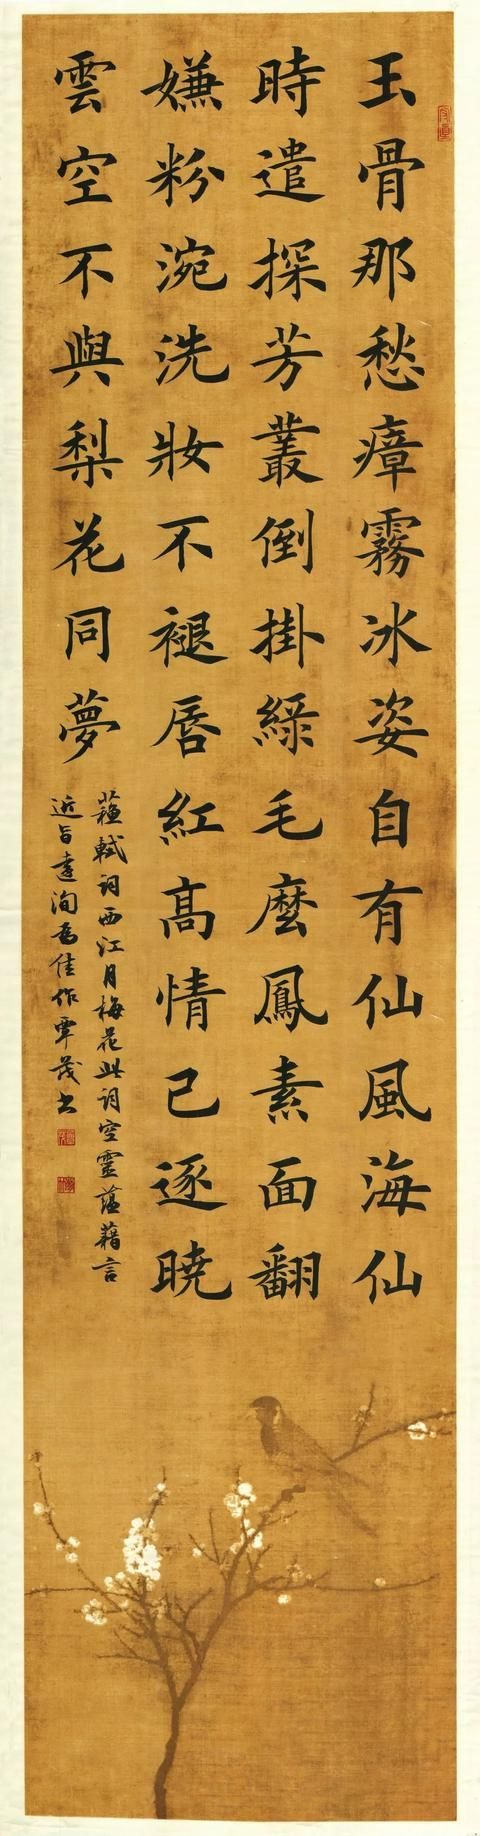 玉骨那愁瘴霧冰姿自有仙風海仙
時遣探芳叢倒掛緑毛麼鳳素面翻
嫌粉涴洗妝不褪唇紅高情已逐曉
雲空不與梨花同夢
蘇軾詞西江月梅花此詞空靈蘊藉言
近旨遠洵為佳作覃茂书